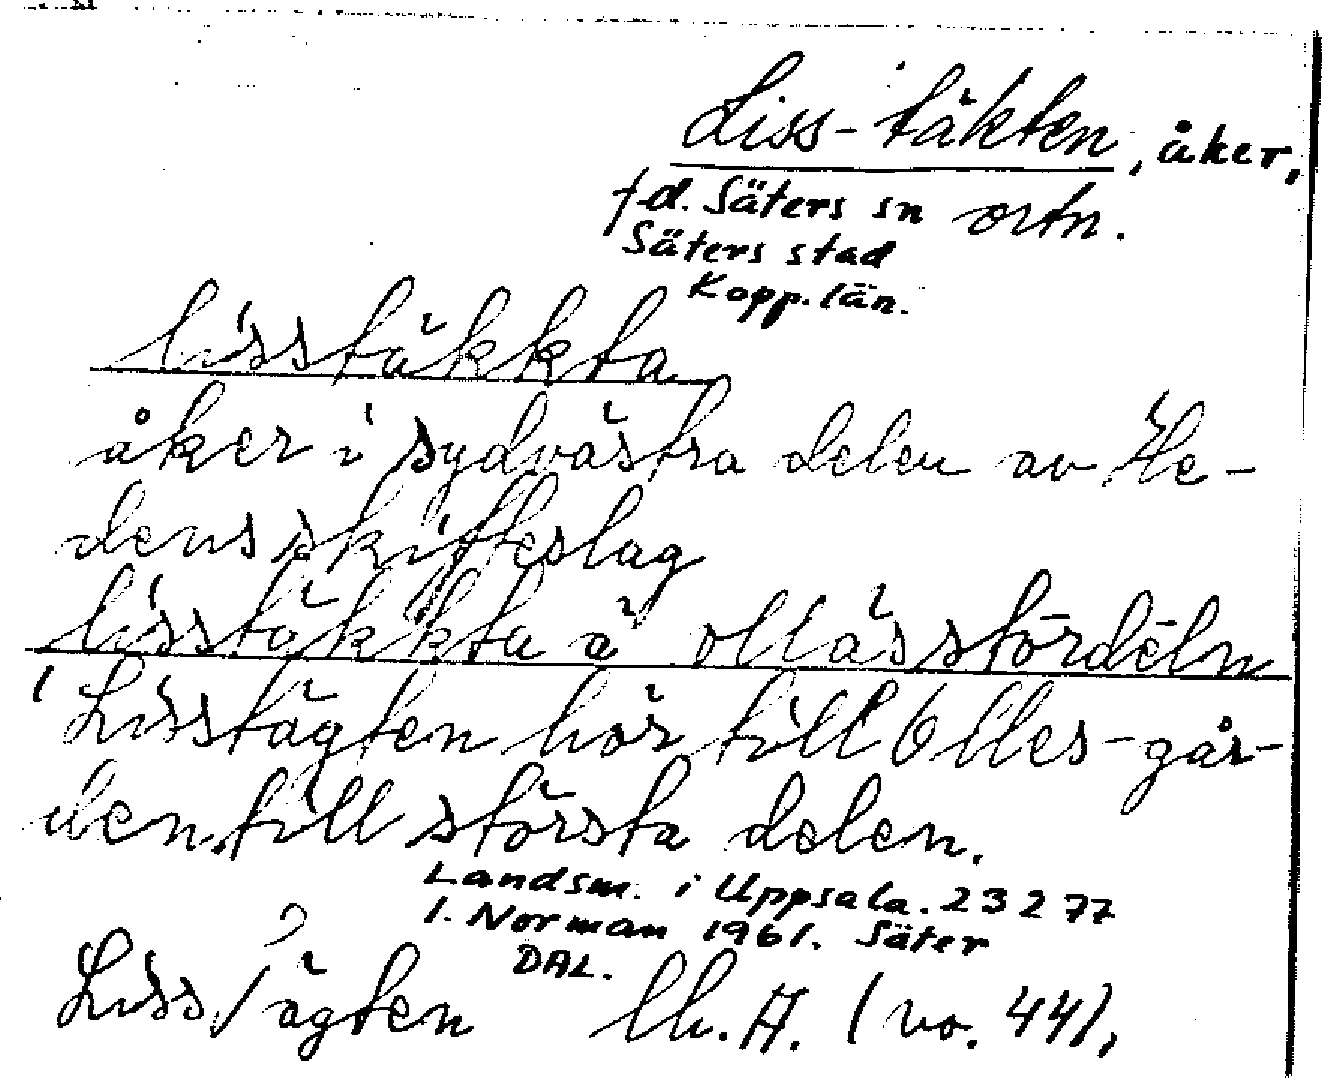 Liss-täkten, åker,
f.d. Säters sn ortn.
Säters stad
Kopp. län.
lisstäkkta
åker i sydvästra delen av He-
dens skifteslag
lisstäkkta ä ollässtördeln
Lisstägten hör till Olles-går-
den, till största delen.
Landsm. i Uppsala. 23277
I. Norman 1961. Säter
DAL.
Liss/ägten lh. A. (no. 44),